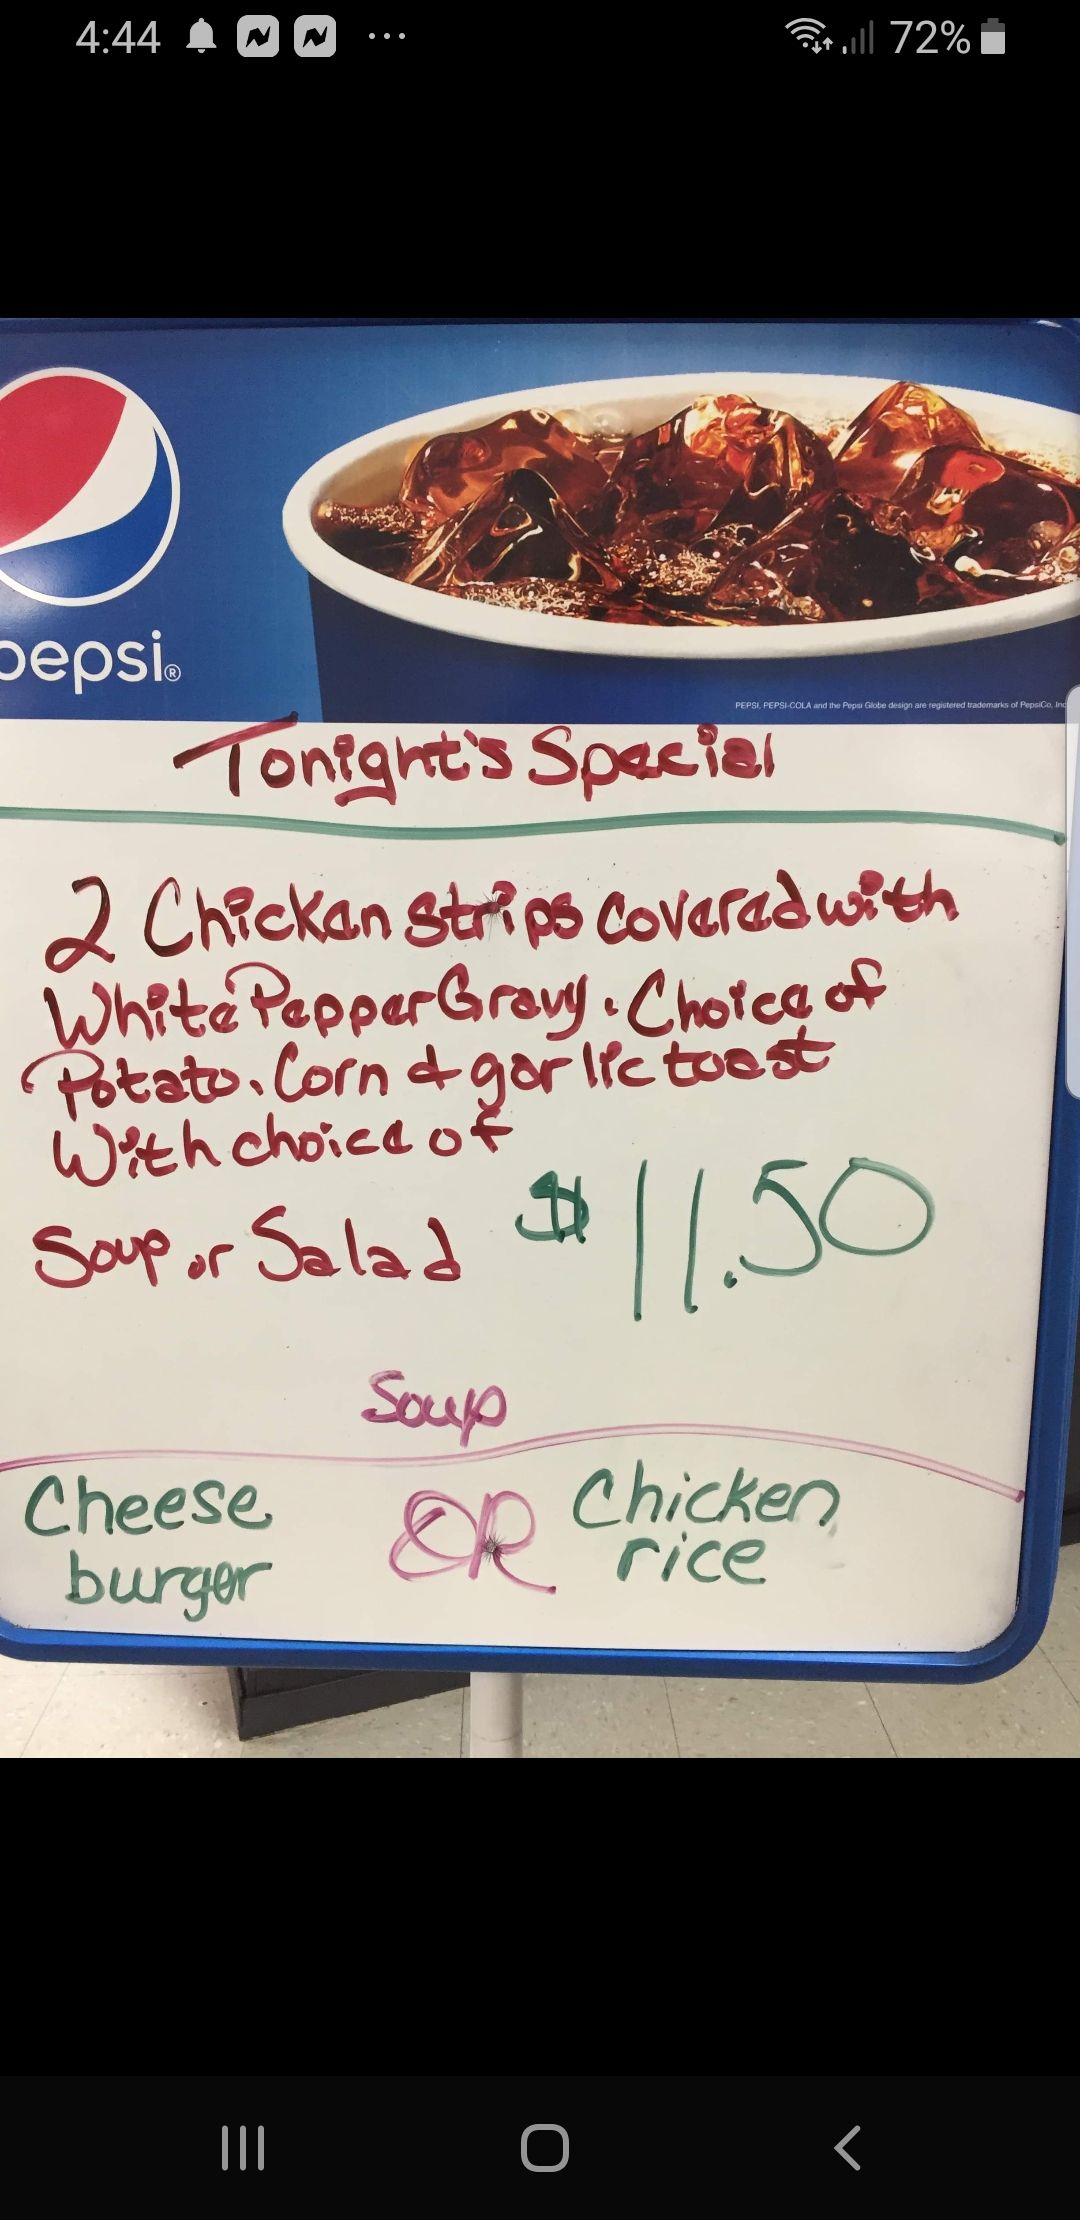 4:44 ... 72%
pepsi®
PEPSI, PEPSI-COLA and the Pepsi Globe design are registered trademarks of PepsiCo, Inc
Tonight's Special
2 Chicken strips covered with
White Pepper Gravy. Choice of
Potato. Corn & garlic toast
With choice of
Soup or Salad $11.50
Soup
Cheese burger OR Chicken rice